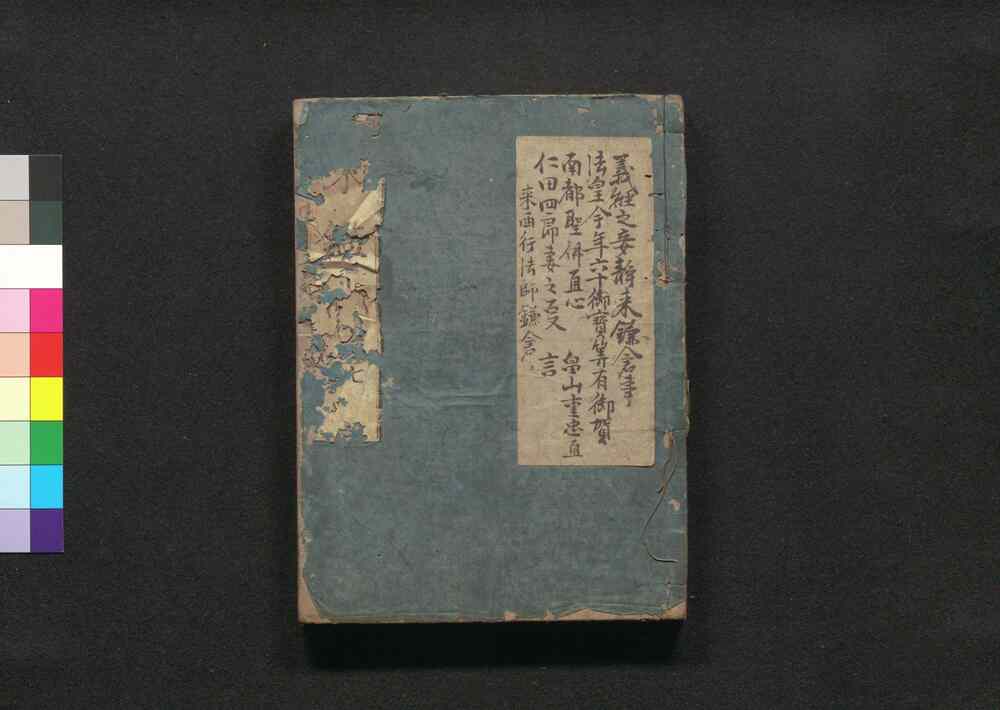 義経之妾静来鎌倉事
法皇今年六十御寶算有御賀
南都聖仏直心 畠山重忠直
仁田四郎妻之㕝 言
来西行法師鎌倉
七